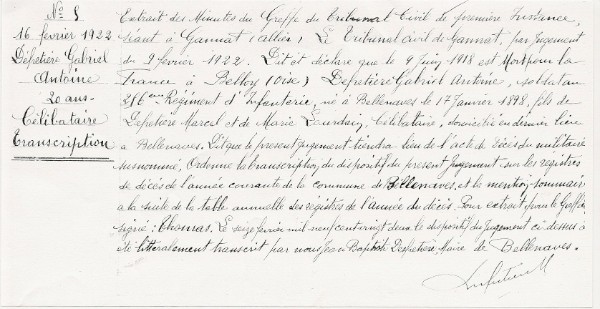 No 5
16 février 1922
Dépretière Gabriel
Antoine
20 ans
Célibataire
Transcription
Extrait des Minutes du Greffe du Tribunal Civil de première Instance,
séant à Gannat (Allier). Le Tribunal Civil de Gannat, par Jugement
du 9 février 1922. Dit et déclare que le 9 Juin 1918 est Mort pour la
France à Belloy (Oise) Dépretière Gabriel Antoine, soldat au
Régiment d'Infanterie, né à Bellenaves le 17 Janvier 1898, fils de
Dépretière Marcel et de Marie, Célibataire, domicilié en dernier lieu
à Bellenaves. Dit que le présent jugement tiendra lieu de l'acte de décès du militaire
susnommé, Ordonne la transcription du dispositif du présent Jugement sur les registres
de décès de l'année courante de la commune de Bellenaves, et la mention sommaire
à la suite de la table annuelle des registres de l'Année du décès. Pour extrait
signé : Le seize février mil neuf cent vingt deux le dispositif du Jugement ci dessus a
été littéralement transcrit par nous Jean Baptiste Dépretière Maire de Bellenaves.